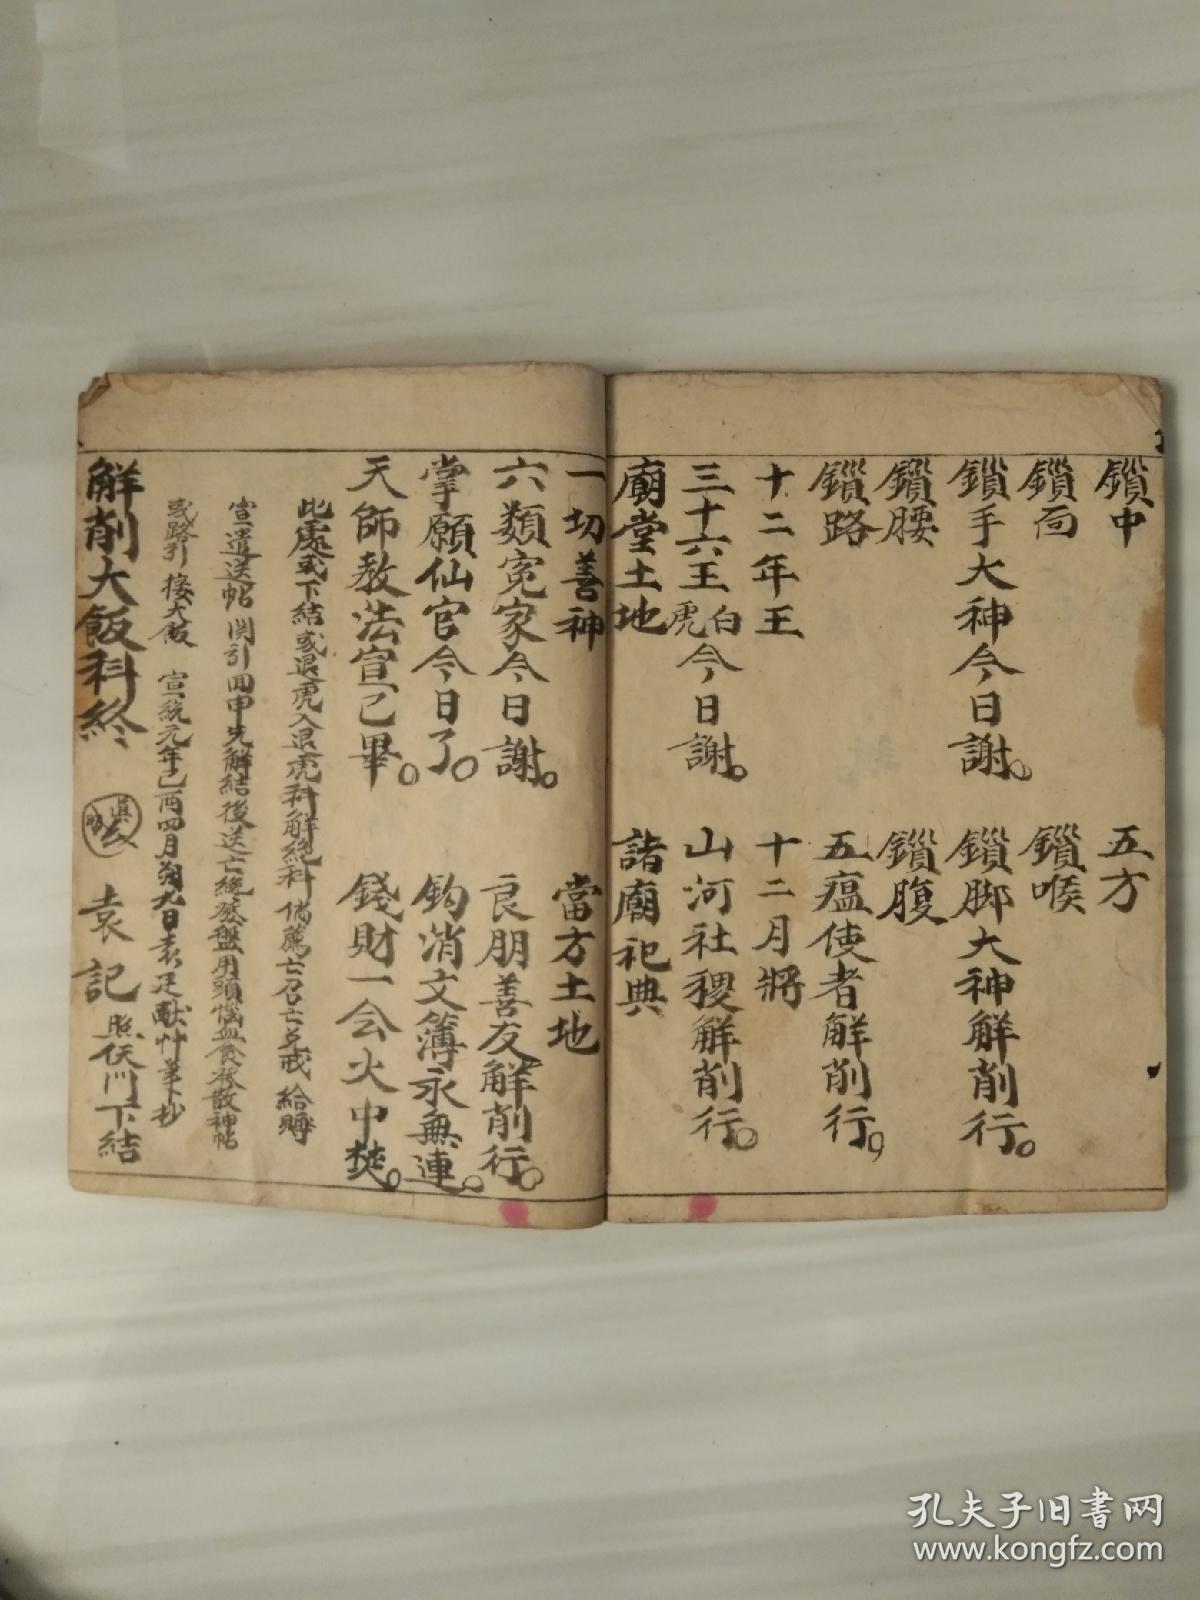 鎖中　五方
鎖面　鎖喉
鎖手大神今日謝。　鎖脚大神解削行。
鎖腰　鎖腹
鎖路　五瘟使者解削行。
十二年王　十二月將
三十六王白虎今日謝。　山河社稷解削行。
廟堂土地　諸廟祀典
一切善神　當方土地
六類寃家今日謝。　良朋善友解削行。
掌願仙官今日了。　鈎消文簿永無連。
天師教法宣已畢。　錢財一会火中焚。
此處或下結或退虎入退虎科解絶科俻薦亡召亡兑戒給賻
宣遣送帖関引回申先解結後送亡絶發盤用頭懺血食衹散神帖
或路引接大飯　宣統元年己酉四月朔九日袁廷献艸筆下抄
解削大飯科終　袁記　照伏門下結
孔夫子旧书网
www.kongfz.com